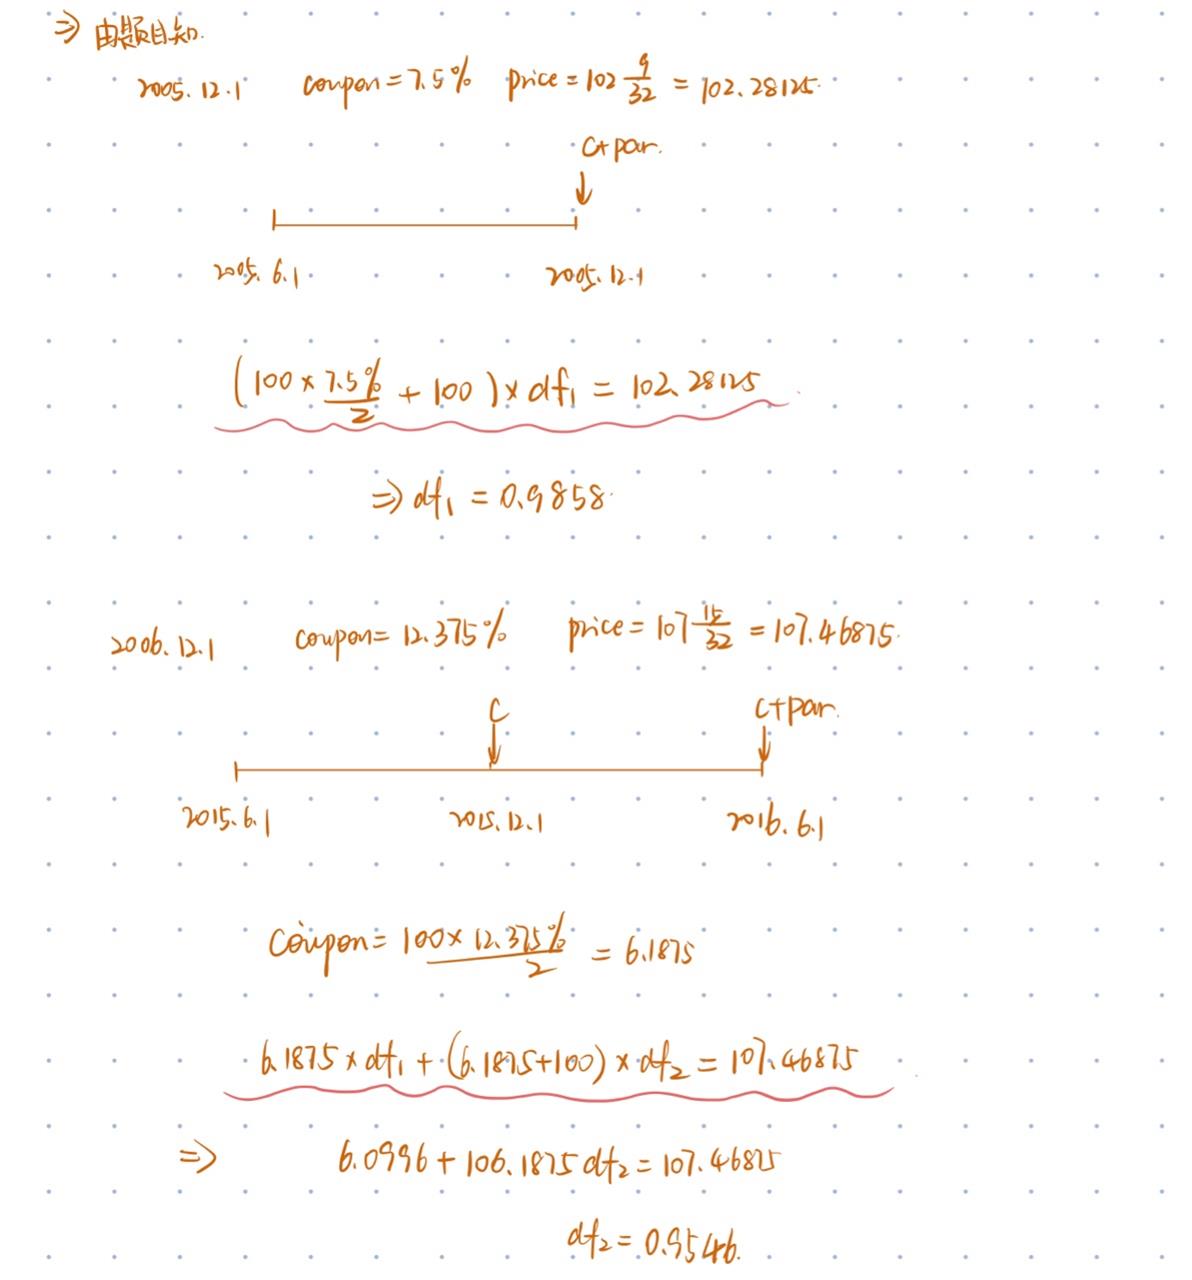 ⇒ 由题目知.
2005.12.1 coupon=7.5% price=102 9/32 = 102.28125.
C+par.
↓
2005.6.1 2005.12.1
(100×7.5%/2 + 100)×df₁ = 102.28125
⇒ df₁ = 0.9858
2006.12.1 coupon=12.375% price=107 15/32 = 107.46875.
C C+par.
↓ ↓
2015.6.1 2015.12.1 2016.6.1
Coupon= 100×12.375%/2 = 6.1875
6.1875×df₁+(6.1875+100)×df₂=107.46875
⇒ 6.0996+106.1875df₂=107.46875
df₂=0.9546.